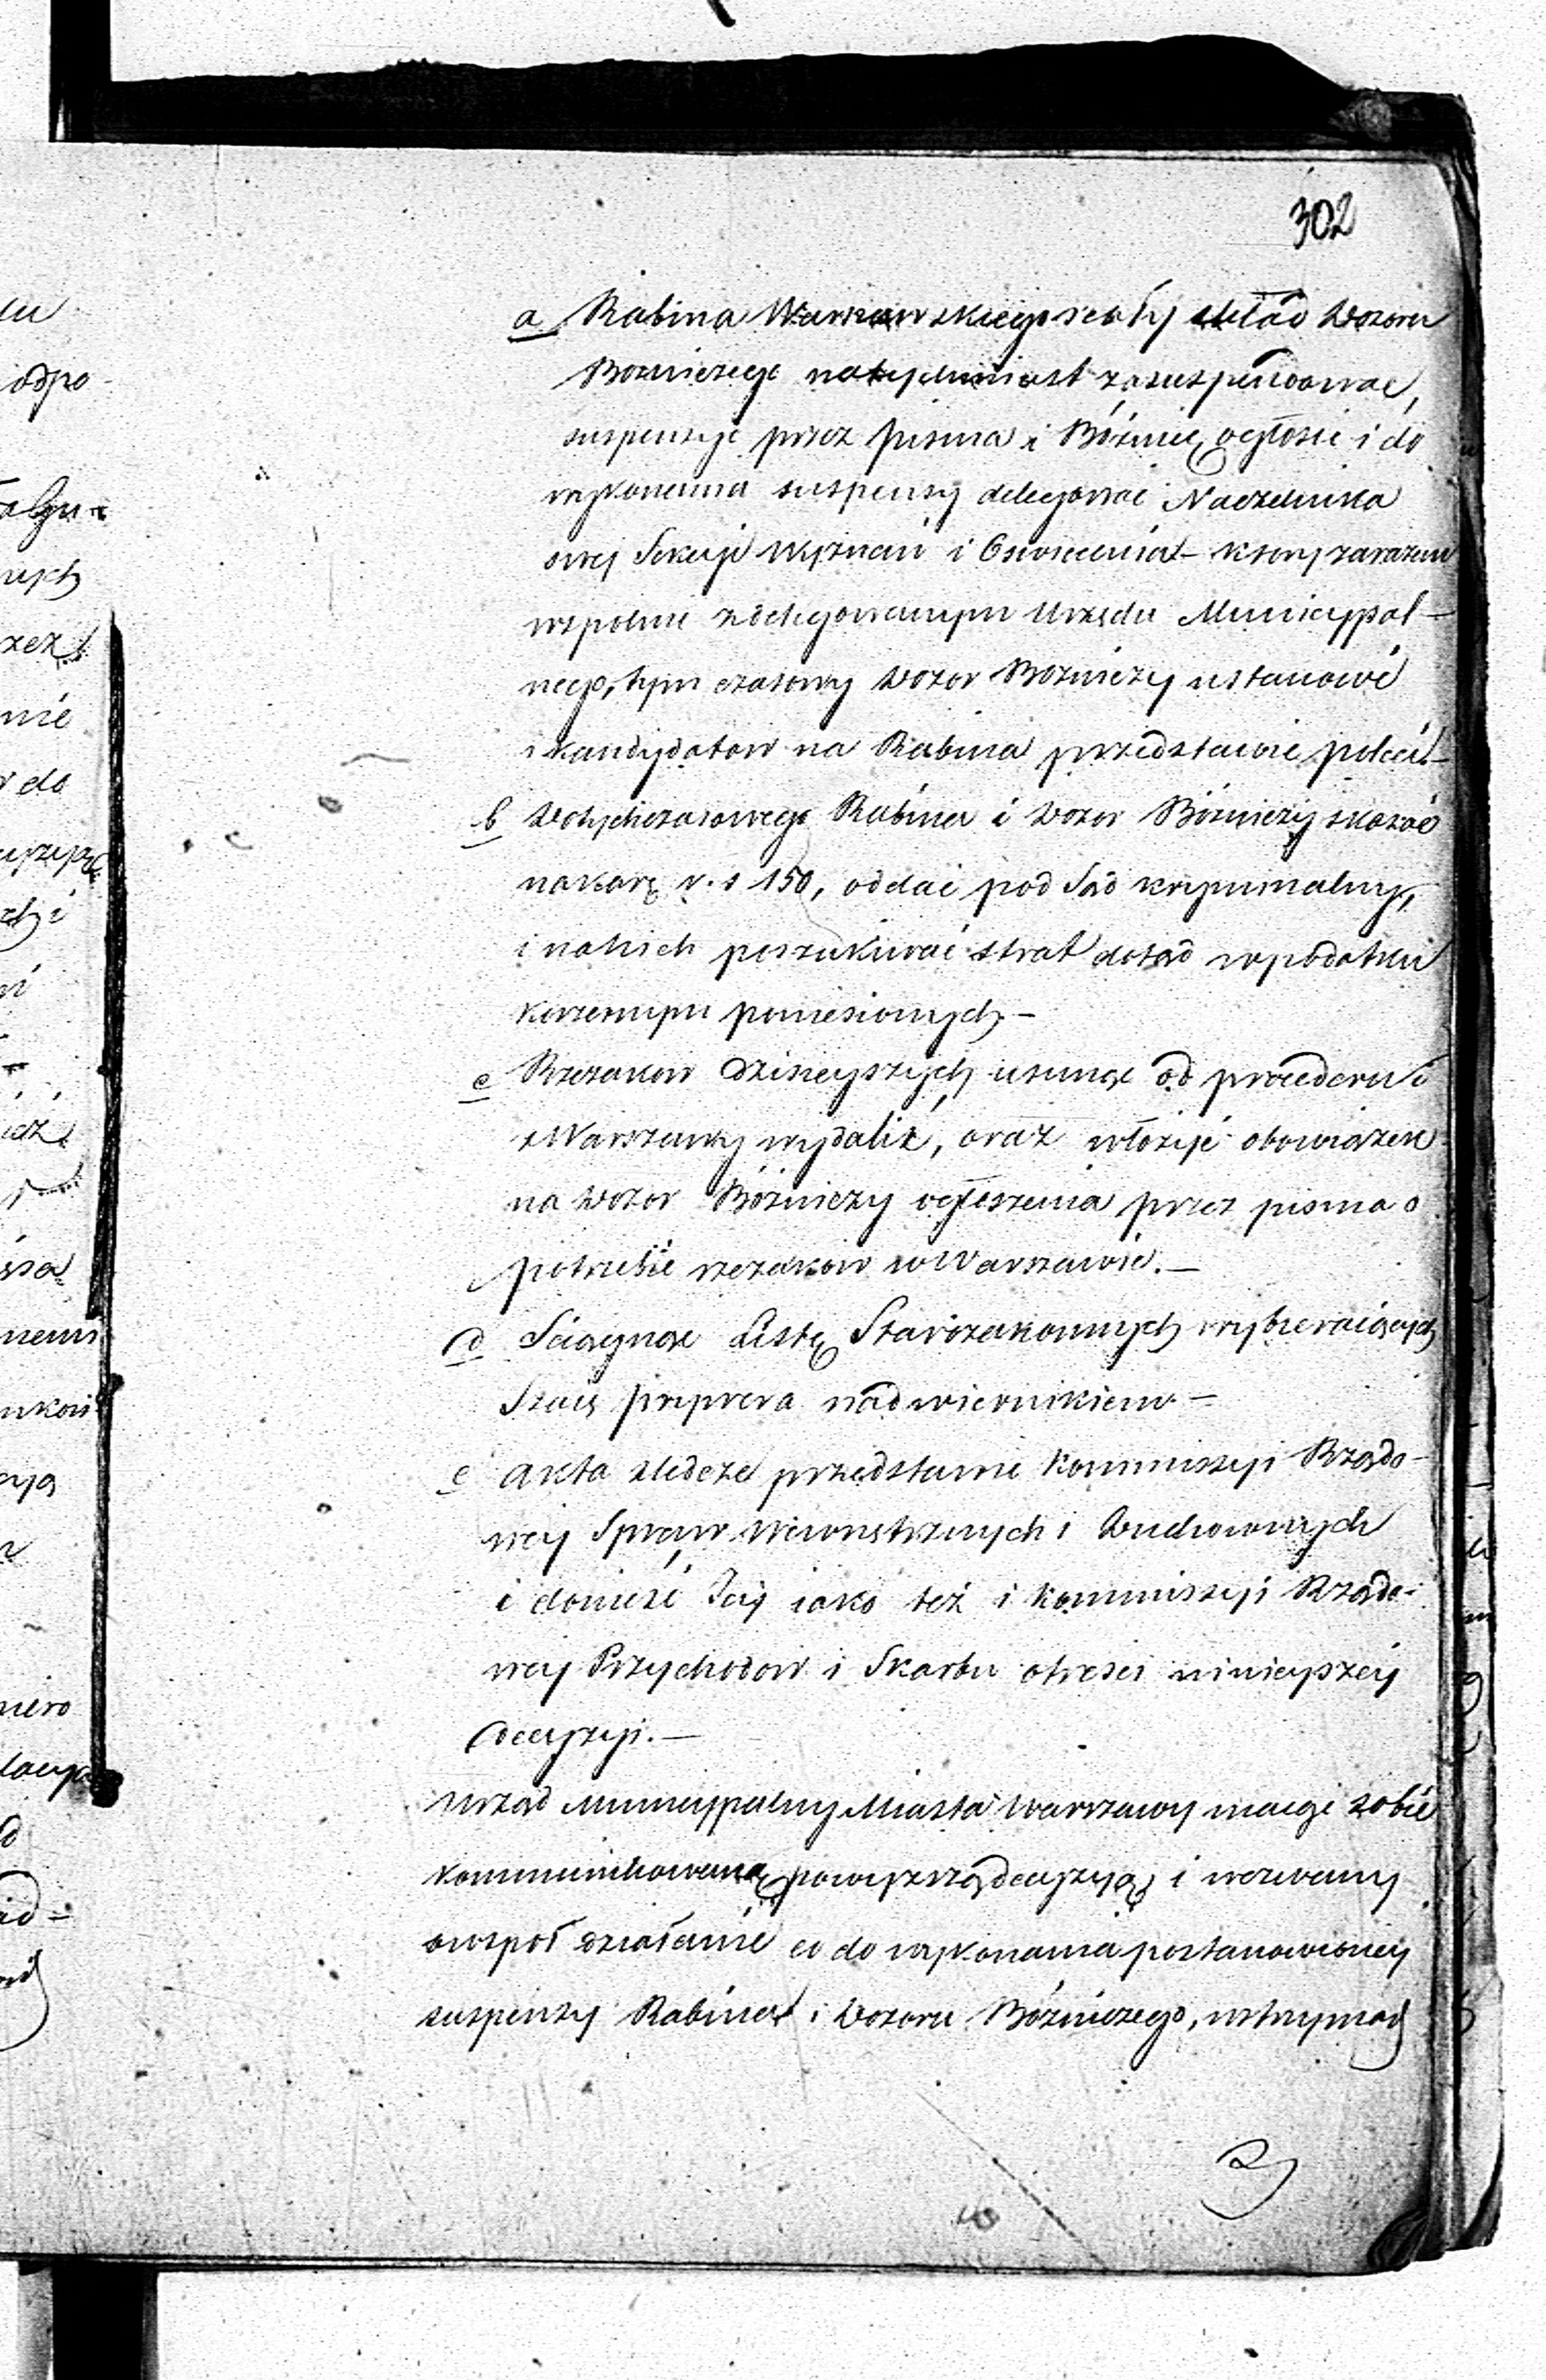 302
a Rabina Warszawskiego i cały skład Dozoru
Bozniczego natychmiast zasuspendować,
suspensyę przez pisma i Bóźnicę ogłosić i do
wykonania suspensy delegować Naczelnika
swej Sekcyi Wyznań i Oswiecenia – ktory zarazem
wspolnie z delegowanym Urzędu Municypal-
nego, tymczasowy Dozor Bozniczy ustanowi
i kandydatow na Rabina przedstawić poleci –
b Dotychczasowego Rabina i Dozor Bóżniczy skazać
na karę r. s 150, oddać pod Sąd kryminalny,
i na nich poszukiwać strat dotąd w podatku
koszernym poniesionych –
c Rzezakow dzisieyszych usunąć od procederu i
z Warszawy wydalić, oraz włożyć obowiązek
na Dozor Bóżniczy ogłoszenia przez pisma o
potrzebie rzezakow w Warszawie. –
d Sciągnąć Listę Starozakonnych wybieraiących
Szaię Preprera nadwiernikiem –
e Akta sledcze przedstawić Kommissyi Rządo-
wey Spraw Wewnętrznych i Duchownych
i donieść Jey iako też i Kommissyi Rządo-
wey Przychodow i Skarbu o tresci ninieyszey
decyzyi. –
Urząd Municypalny Miasta Warszawy maiąc sobie
kommunikowaną powyższą decyzyą, i wezwany
o wspoł działanie co do wykonania postanowioney
suspensy Rabina i Dozoru Bóżniczego, wstrzymał